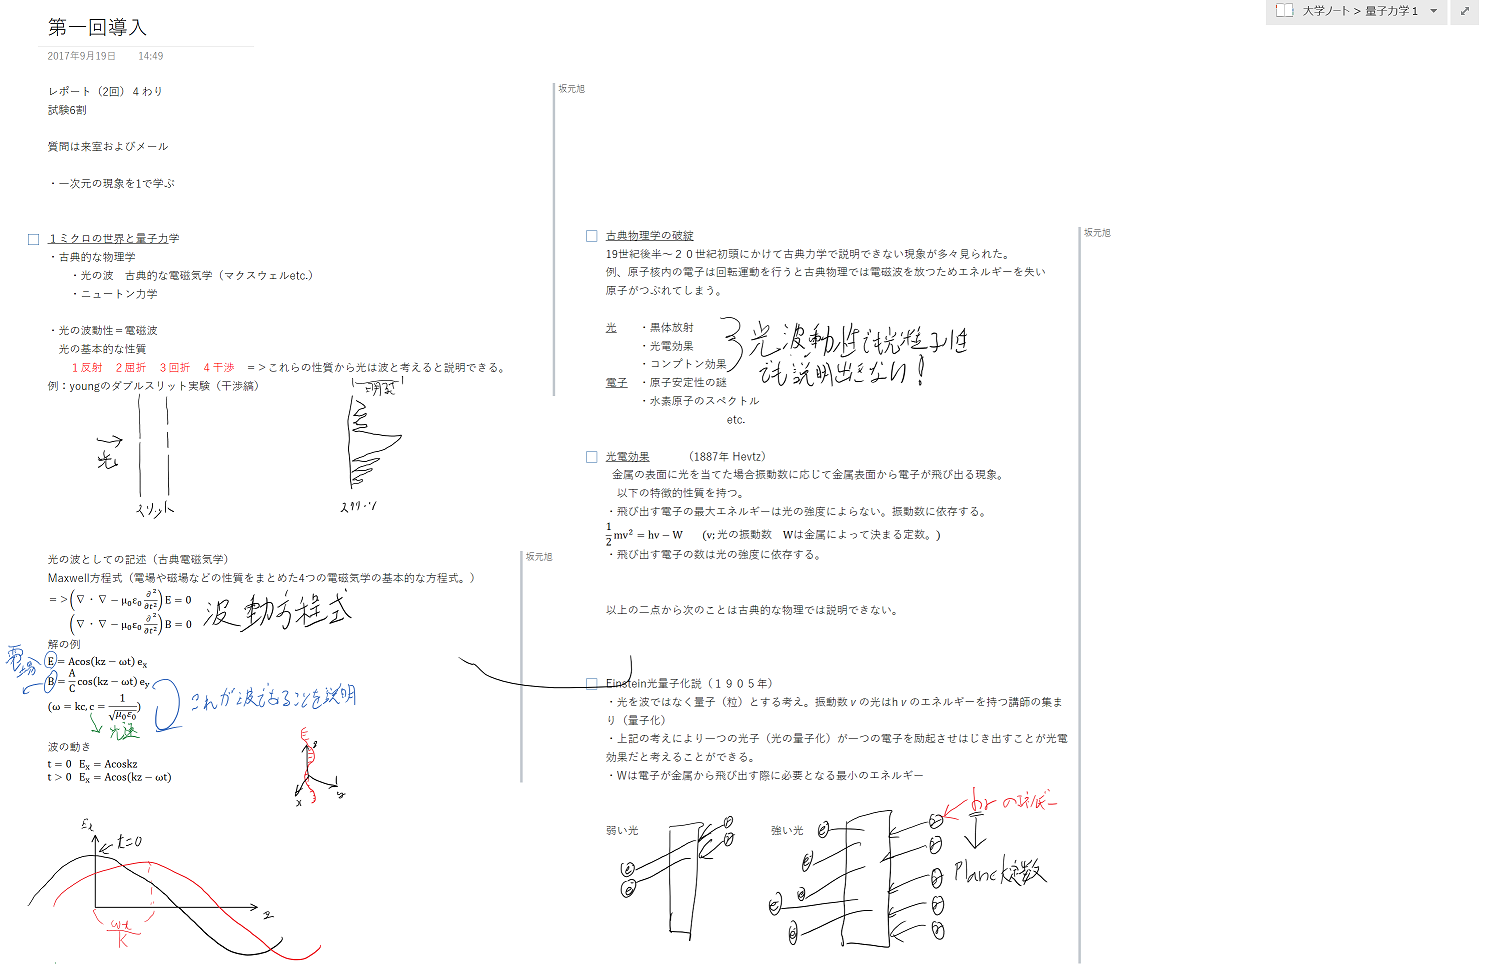 大学ノート > 量子力学１
第一回導入
2017年9月19日 14:49
レポート（2回）４わり
試験6割
質問は来室およびメール
・一次元の現象を1で学ぶ
坂元旭
１ミクロの世界と量子力学
・古典的な物理学
・光の波　古典的な電磁気学（マクスウェルetc.）
・ニュートン力学
・光の波動性＝電磁波
光の基本的な性質
１反射　２屈折　３回折　４干渉　＝＞これらの性質から光は波と考えると説明できる。
例：youngのダブルスリット実験（干渉縞）
光
スリット
スクリーン
光の波としての記述（古典電磁気学）
坂元旭
Maxwell方程式（電場や磁場などの性質をまとめた4つの電磁気学の基本的な方程式。）
＝＞(∇・∇ − μ₀ε₀ ∂²/∂t²) E = 0
(∇・∇ − μ₀ε₀ ∂²/∂t²) B = 0
波動方程式
解の例
電場
E = Acos(kz − ωt) eₓ
B = A/C cos(kz − ωt) eᵧ
(ω = kc, c = 1/√(μ₀ε₀))
これが波であることを説明
光速
波の動き
t = 0 Eₓ = Acoskz
t > 0 Eₓ = Acos(kz − ωt)
x
y
z
Eₓ
t=0
z
ωt/k
古典物理学の破綻
坂元旭
19世紀後半～２０世紀初頭にかけて古典力学で説明できない現象が多々見られた。
例、原子核内の電子は回転運動を行うと古典物理では電磁波を放つためエネルギーを失い
原子がつぶれてしまう。
光　・黒体放射
・光電効果
・コンプトン効果
電子　・原子安定性の謎
・水素原子のスペクトル
etc.
光波動性でも光粒子性
でも説明出きない!
光電効果　（1887年 Hevtz）
金属の表面に光を当てた場合振動数に応じて金属表面から電子が飛び出る現象。
以下の特徴的性質を持つ。
・飛び出す電子の最大エネルギーは光の強度によらない。振動数に依存する。
1/2 mv² = hν − W　(ν; 光の振動数　Wは金属によって決まる定数。)
・飛び出す電子の数は光の強度に依存する。
以上の二点から次のことは古典的な物理では説明できない。
Einstein光量子化説（１９０５年）
・光を波ではなく量子（粒）とする考え。振動数νの光はhνのエネルギーを持つ講師の集ま
り（量子化）
・上記の考えにより一つの光子（光の量子化）が一つの電子を励起させはじき出すことが光電
効果だと考えることができる。
・Wは電子が金属から飛び出す際に必要となる最小のエネルギー
弱い光
強い光
hνのエネルギー
Planck定数